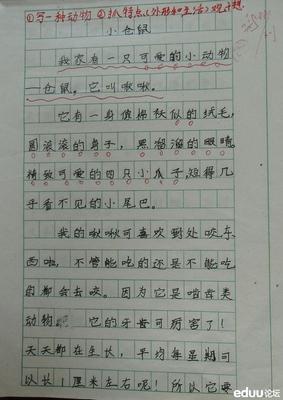 ①写一种动物 ②抓特点(外形和生活)
小仓鼠
我家有一只可爱的小动物
—仓鼠。它叫啾啾。
它有一身像秋似的绒毛,
圆滚滚的身子,黑溜溜的眼睛
精致可爱的四只小爪子,短得几
乎看不见的小尾巴。
我的啾啾可喜欢到处咬东
西啦,不管能吃的还是不能吃
的都会去咬。因为它是啮齿类
动物 它的牙齿可厉害了!
天天都在生长,平均每星期可
以长1厘米左右呢!所以它要
eduu论坛